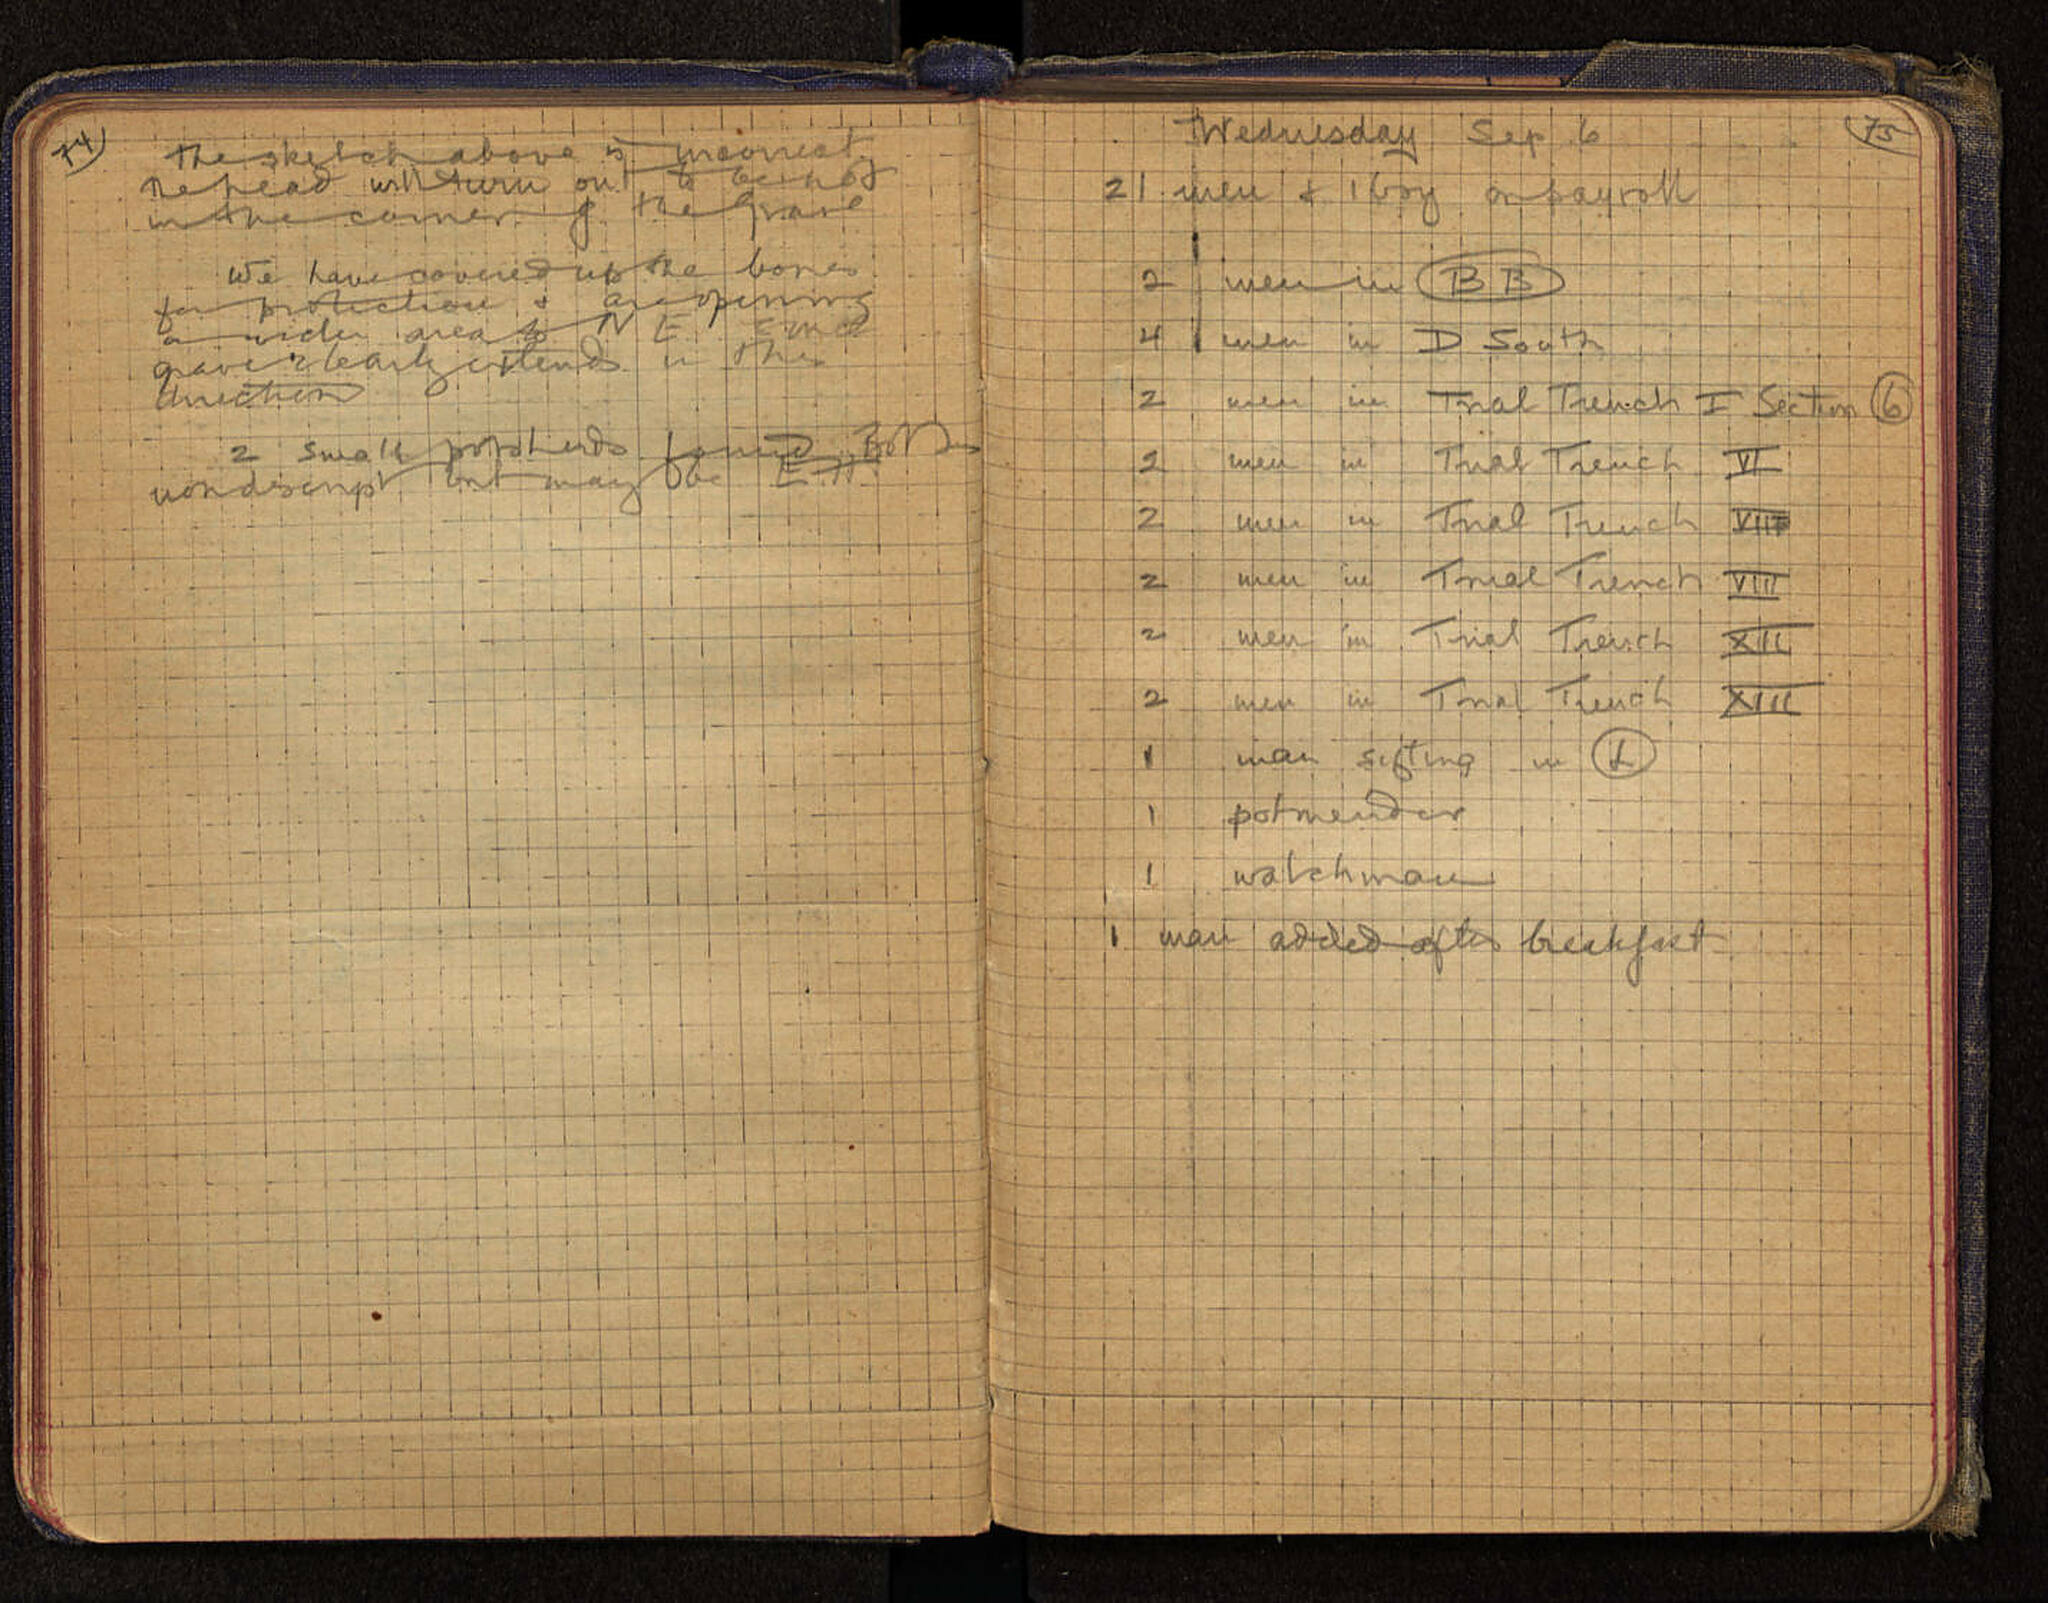 74
The sketch above is incorrect.
The head will turn out to be not
in the corner of the grave
We have covered up the bones
for protection & are opening
a wider area to N E since
grave clearly extends in this
direction
2 small potsherds found. Both
nondescript but may be E H.
75
Wednesday Sep 6
21 men & 1 boy on payroll
2 men in BB
4 men in D South
2 men in Trial Trench I Section 6
2 men in Trial Trench VI
2 men in Trial Trench VII
2 men in Trial Trench VIII
2 men in Trial Trench XII
2 men in Trial Trench XIII
1 man sifting in L
1 potmender
1 watchman
1 man added after breakfast